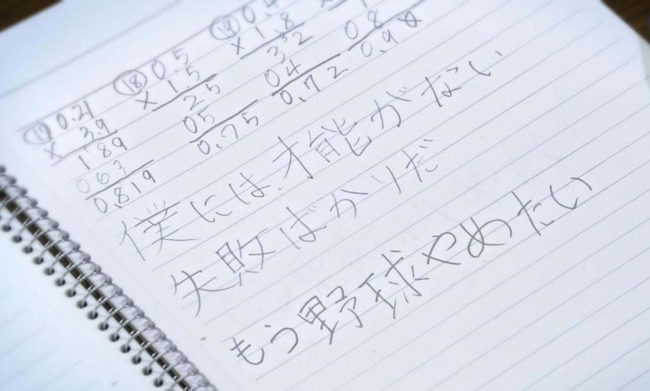 ⑰ 0.21
× 3.9
189
063
0819
⑱ 0.5
× 1.5
25
05
0.75
⑲ 0.4
× 1.8
32
04
0.72
08
0.98
僕には才能がない
失敗ばかりだ
もう野球やめたい